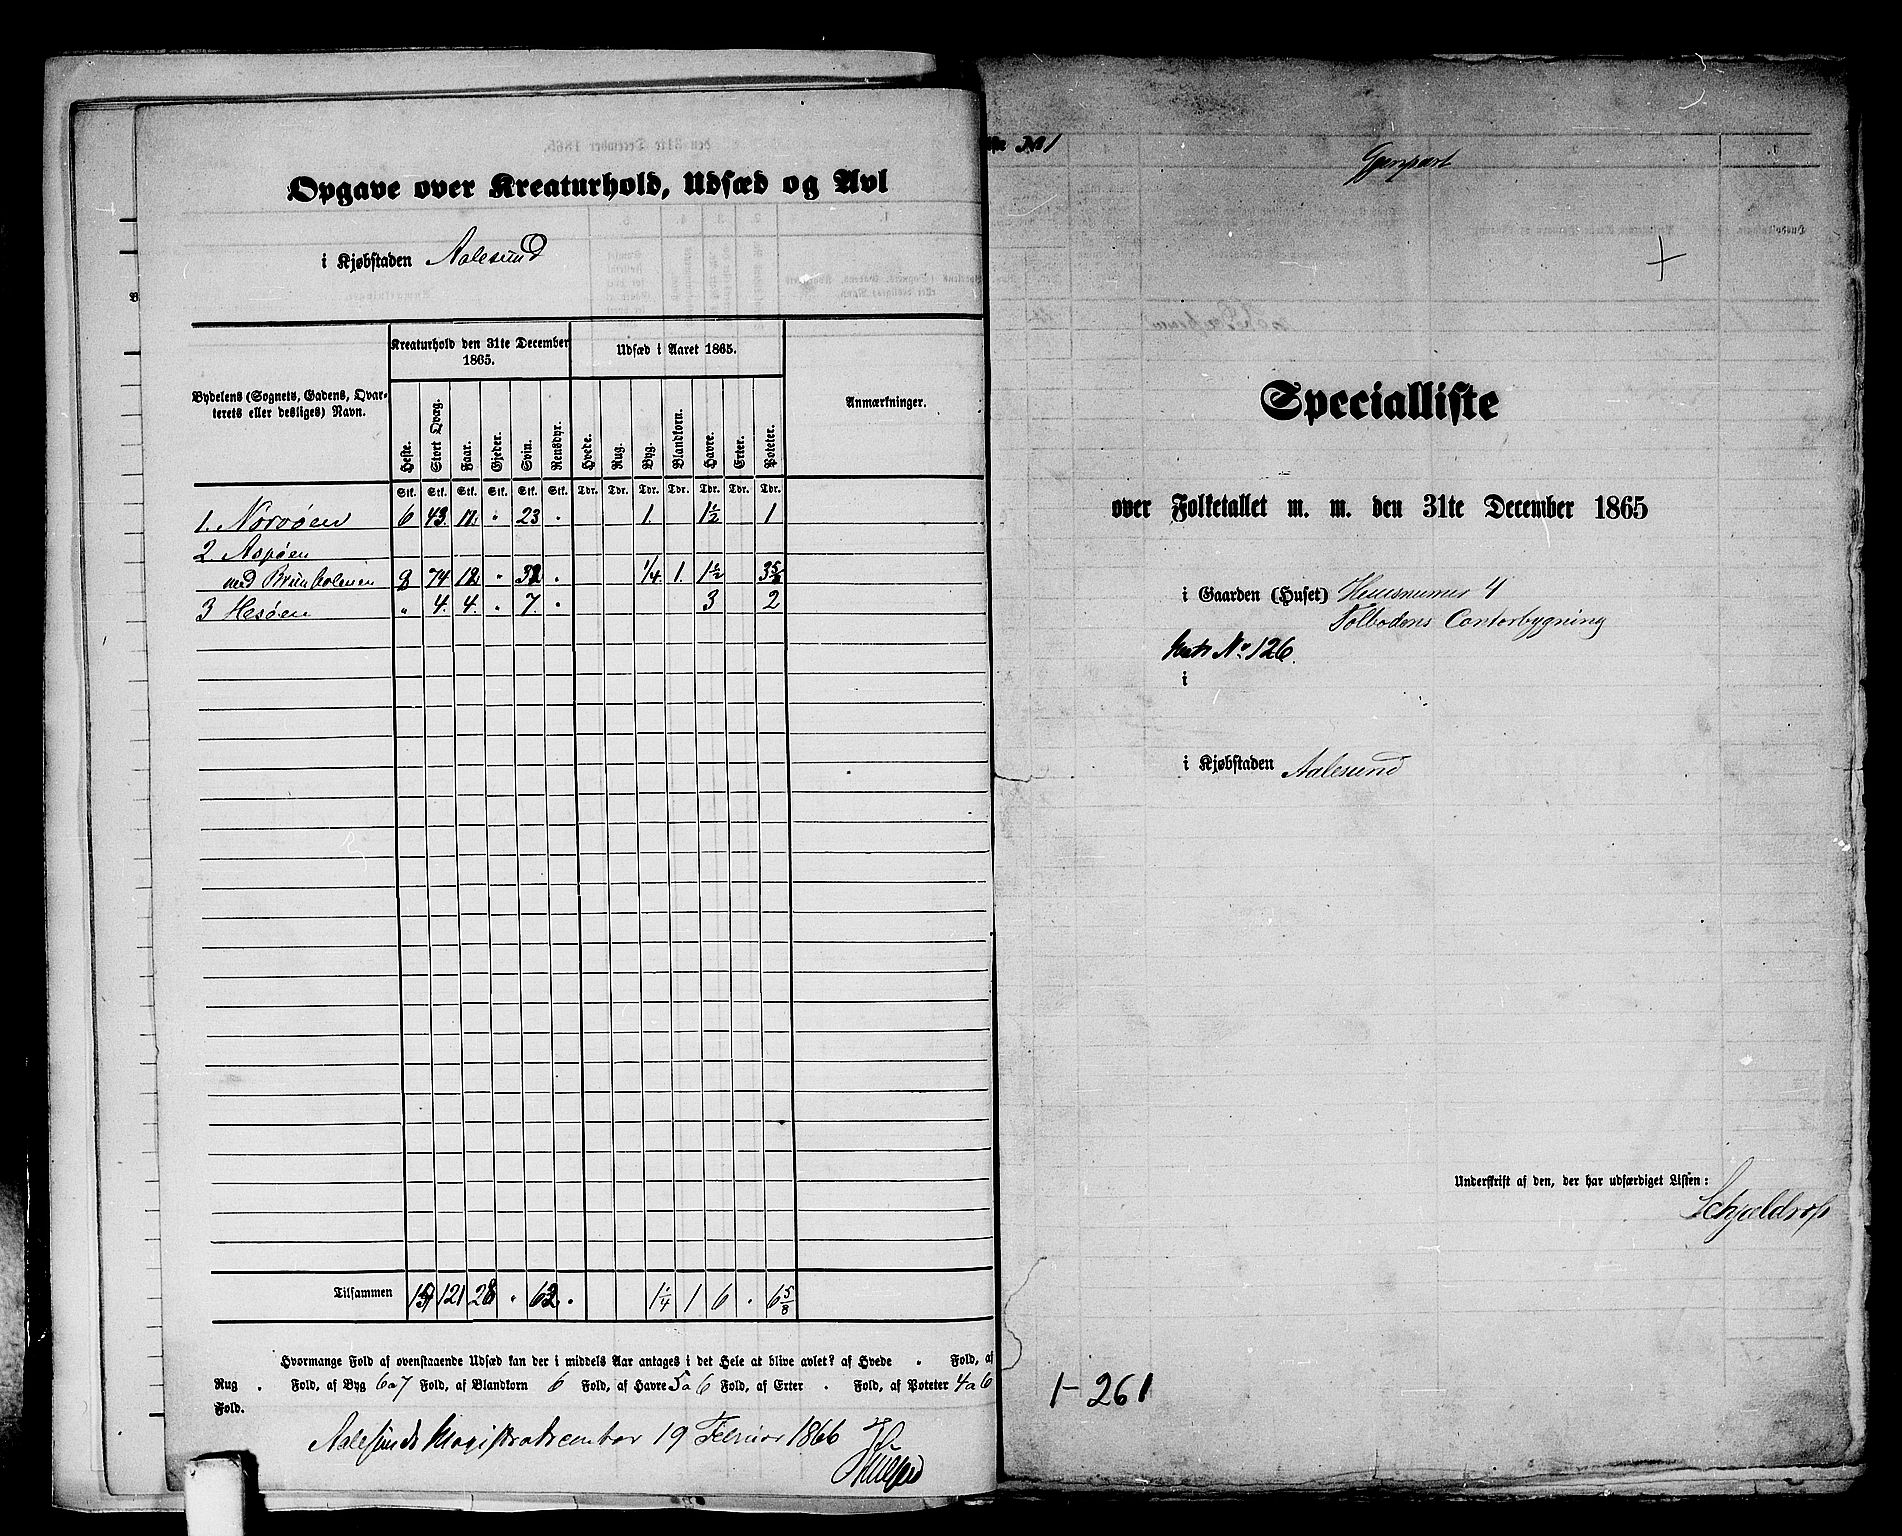 Opgave over Kreaturhold, Udsæd og Avl
i Kjøbstaden Aalesund
Bydelens (Sognets, Gadens, Qvarterets eller desliges) Navn.
Kreaturhold den 31te December 1865.
Udsæd i Aaret 1865.
Anmærkninger.
Heste. Stort Qvæg. Faar. Gjeder. Svin. Rensdyr. Hvede. Rug. Byg. Blandkorn. Havre. Erter. Poteter.
Stk. Stk. Stk. Stk. Stk. Stk. Tdr. Tdr. Tdr. Tdr. Tdr. Tdr. Tdr.
1. Norvøen 6 43. 12. " 23 " 1. 1½ 1
2. Aspøen
med Brunholmen 9 74 12. " 32 " 1/4. 1. 1½ 3 5/8
3 Hesøen " 4. 4. " 7. " 3 2
Tilsammen 15 121 28 " 62. " 1¼ 1 6 " 6 5/8
Hvormange Fold af ovenstaaende Udsæd kan der i middels Aar antages i det Hele at blive avlet? af Hvede " Fold, af
Rug " Fold, af Byg 6 a 7 Fold, af Blandkorn 6 Fold, af Havre 5 a 6 Fold, af Erter " Fold, af Poteter 4 a 6
Fold.
Aalesunds Magistratscontor 19 Februar 1866
Liste No 1
Gjenpart
Specialliste
over Folketallet m. m. den 31te December 1865
i Gaarden (Huset) Huusnumer 4
Tolbodens Contorbygning
Matr No 126.
i
i Kjøbstaden Aalesund
Underskrift af den, der har udfærdiget Listen:
Schjeldrop
1-261